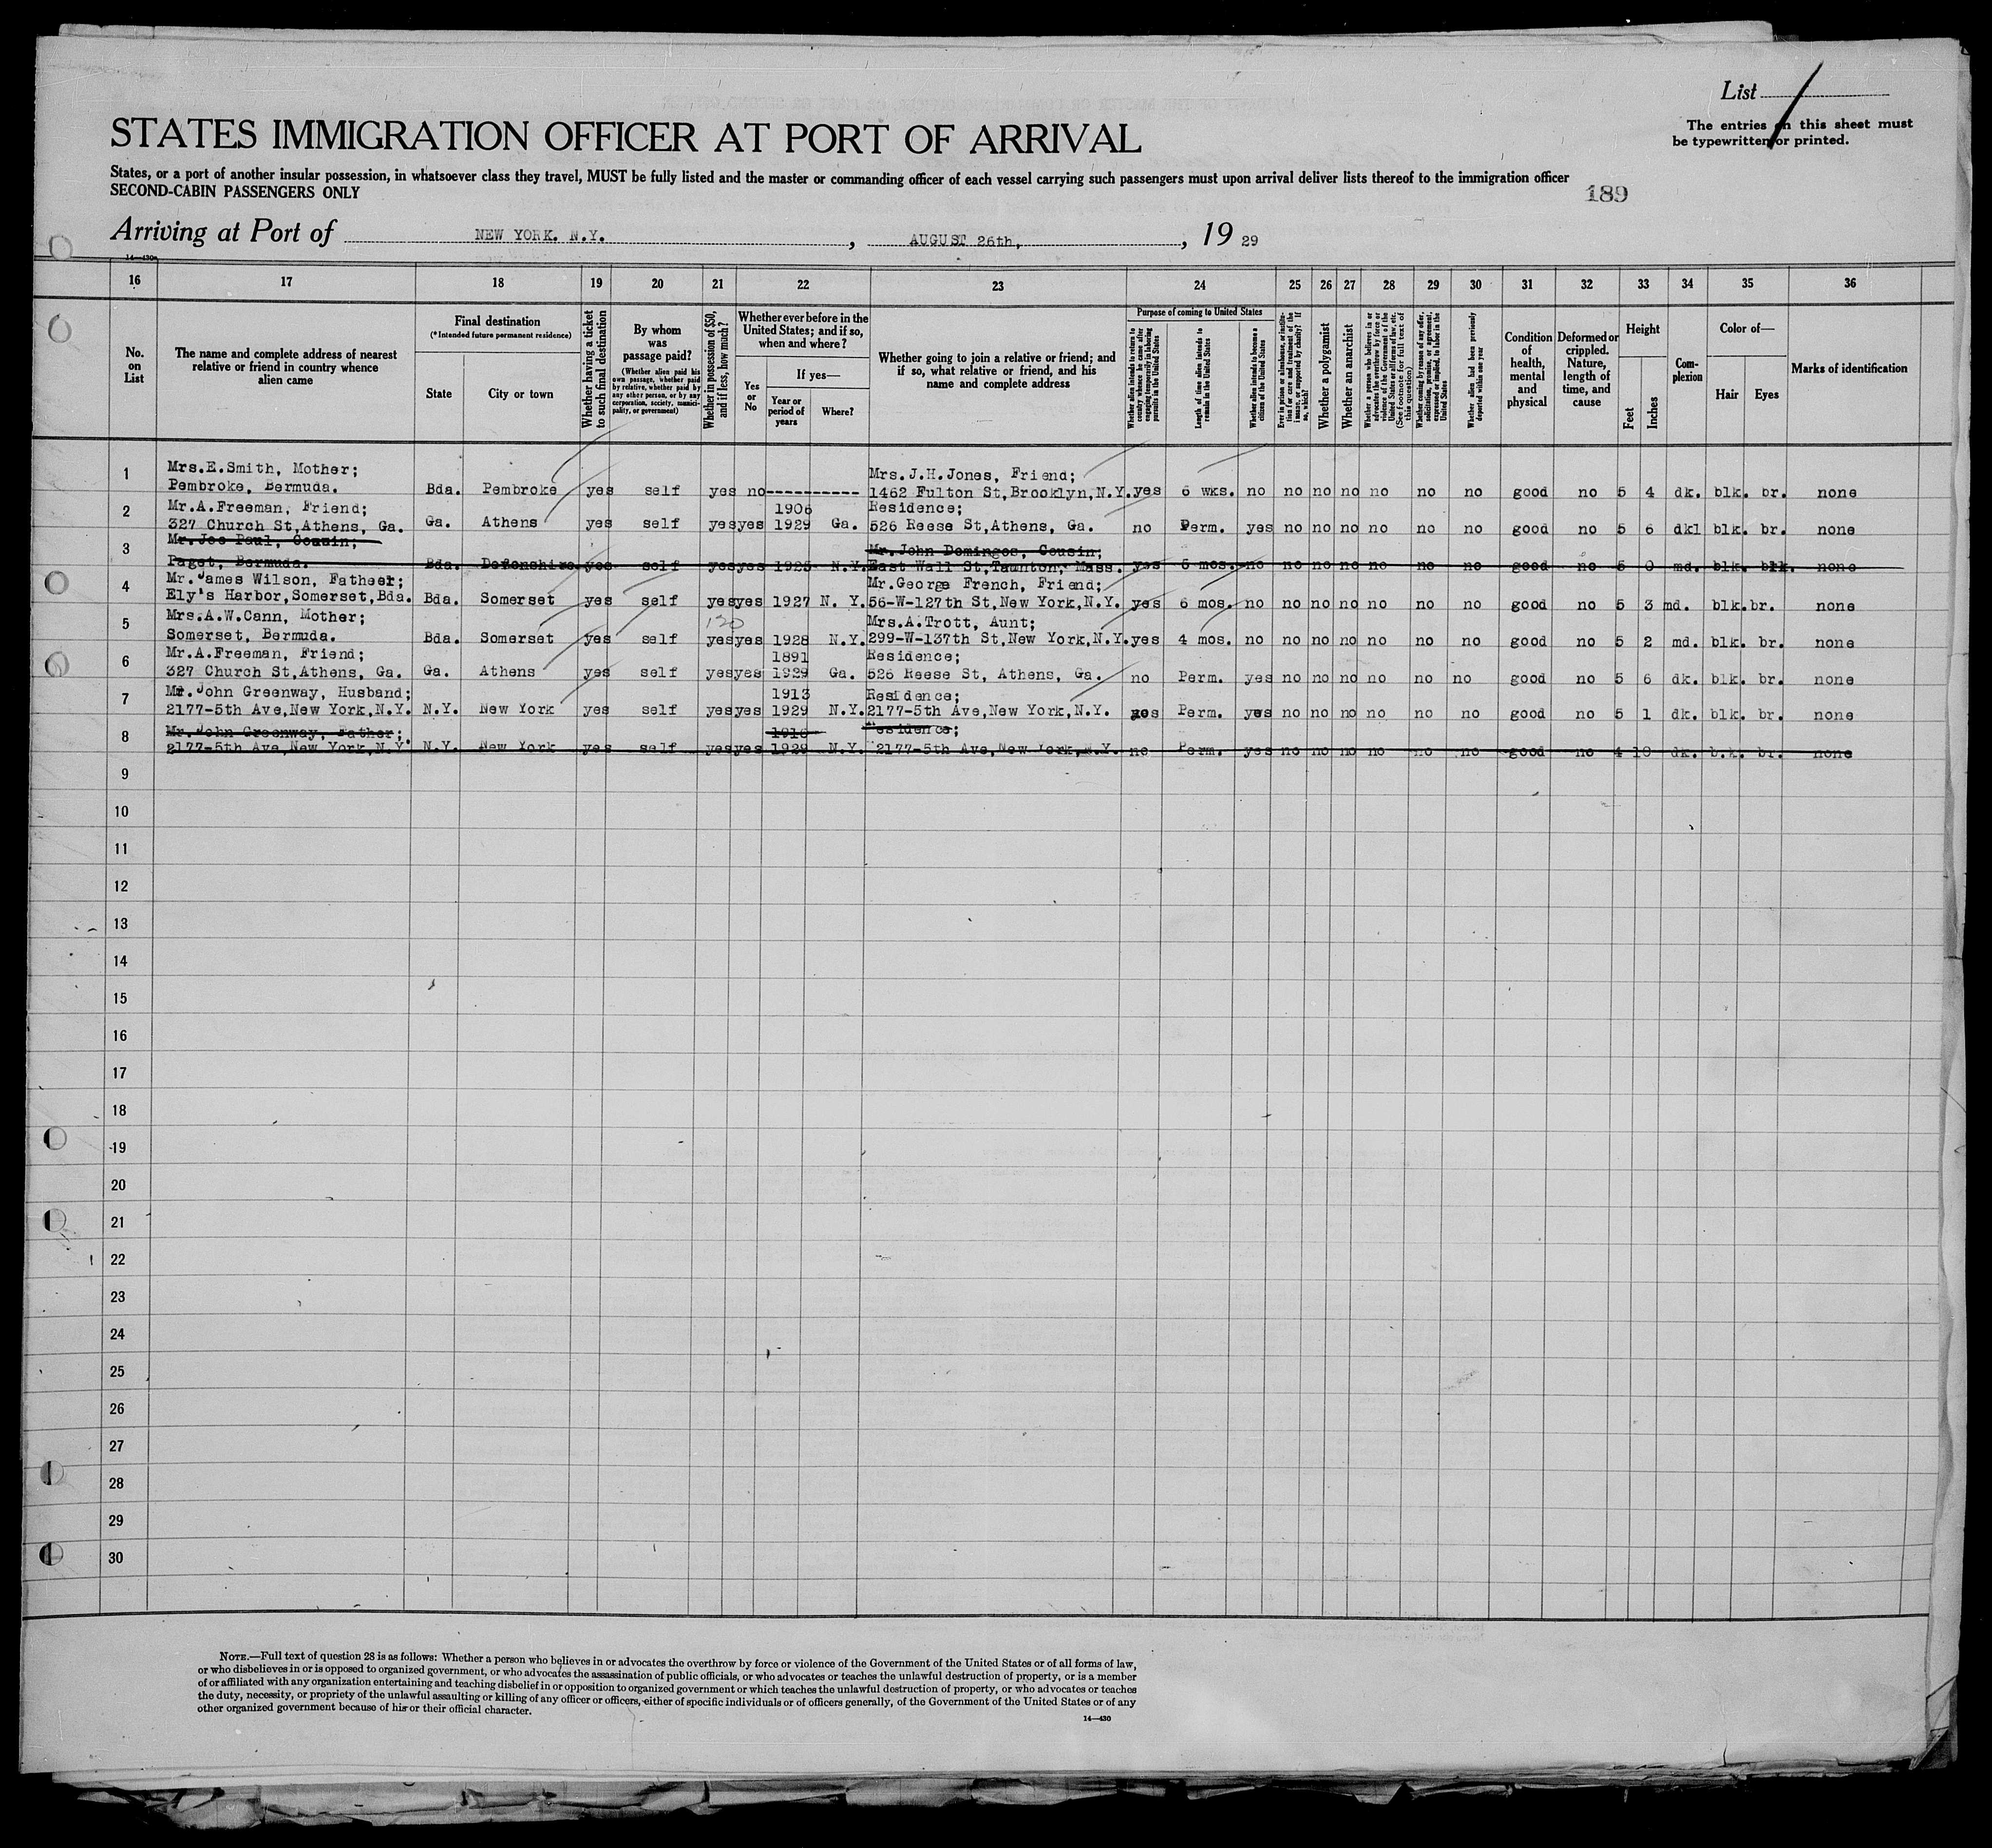 List
The entries on this sheet must
be typewritten or printed.
STATES IMMIGRATION OFFICER AT PORT OF ARRIVAL
States, or a port of another insular possession, in whatsoever class they travel, MUST be fully listed and the master or commanding officer of each vessel carrying such passengers must upon arrival deliver lists thereof to the immigration officer
SECOND-CABIN PASSENGERS ONLY
189
Arriving at Port of NEW YORK. N.Y. , AUGUST 26th, , 19 29
14—430
16 17 18 19 20 21 22 23 24 25 26 27 28 29 30 31 32 33 34 35 36
No. on List
The name and complete address of nearest relative or friend in country whence alien came
Final destination
(*Intended future permanent residence)
State
City or town
Whether having a ticket to such final destination
By whom was passage paid?
(Whether alien paid his own passage, whether paid by relative, whether paid by any other person, or by any corporation, society, municipality, or government)
Whether in possession of $50, and if less, how much?
Whether ever before in the United States; and if so, when and where?
Yes or No
If yes—
Year or period of years
Where?
Whether going to join a relative or friend; and if so, what relative or friend, and his name and complete address
Purpose of coming to United States
Whether alien intends to return to country whence he came after engaging temporarily in laboring pursuits in the United States
Length of time alien intends to remain in the United States
Whether alien intends to become a citizen of the United States
Ever in prison or almshouse, or institution for care and treatment of the insane, or supported by charity? If so, which?
Whether a polygamist
Whether an anarchist
Whether a person who believes in or advocates the overthrow by force or violence of the Government of the United States or all forms of law, etc. (See footnote for full text of this question)
Whether coming by reason of any offer, solicitation, promise, or agreement, expressed or implied, to labor in the United States
Whether alien had been previously deported within one year
Condition of health, mental and physical
Deformed or crippled. Nature, length of time, and cause
Height
Feet
Inches
Complexion
Color of—
Hair
Eyes
Marks of identification
1 Mrs.E.Smith, Mother; Mrs.J.H.Jones, Friend;
Pembroke, Bermuda. Bda. Pembroke yes self yes no---------- 1462 Fulton St,Brooklyn,N.Y. yes 6 wks. no no no no no no no good no 5 4 dk. blk. br. none
2 Mr.A.Freeman, Friend; 1906 Residence;
327 Church St,Athens, Ga. Ga. Athens yes self yes yes 1929 Ga. 526 Reese St,Athens, Ga. no Perm. yes no no no no no no good no 5 6 dkl blk. br. none
3 Mr. Joe Paul, Cousin; Mr. John Domingos, Cousin;
Paget, Bermuda. Bda. Devonshire yes self yes yes 1925 N.Y. East Wall St,Taunton, Mass. yes 6 mos. no no no no no no no good no 5 0 md. blk. blk. none
4 Mr. James Wilson, Father; Mr.George French, Friend;
Ely's Harbor,Somerset,Bda. Bda. Somerset yes self yes yes 1927 N. Y. 56-W-127th St,New York,N.Y. yes 6 mos. no no no no no no no good no 5 3 md. blk. br. none
120
5 Mrs.A.W.Cann, Mother; Mrs.A.Trott, Aunt;
Somerset, Bermuda. Bda. Somerset yes self yes yes 1928 N.Y. 299-W-137th St,New York,N.Y. yes 4 mos. no no no no no no no good no 5 2 md. blk. br. none
6 Mr.A.Freeman, Friend; 1891 Residence;
327 Church St,Athens, Ga. Ga. Athens yes self yes yes 1929 Ga. 526 Reese St, Athens, Ga. no Perm. yes no no no no no no good no 5 6 dk. blk. br. none
7 Mr. John Greenway, Husband; 1913 Residence;
2177-5th Ave,New York,N.Y. N.Y. New York yes self yes yes 1929 N.Y. 2177-5th Ave,New York,N.Y. Perm. yes no no no no no no good no 5 1 dk. blk. br. none
8 Mr. John Greenway, Father; Residence;
2177-5th Ave,New York,N.Y. N.Y. New York yes self yes yes 1929 N.Y. 2177-5th Ave,New York,N.Y. no Perm. yes no no no no no no good no 4 10 dk. blk. br. none
9
10
11
12
13
14
15
16
17
18
19
20
21
22
23
24
25
26
27
28
29
30
NOTE.—Full text of question 28 is as follows: Whether a person who believes in or advocates the overthrow by force or violence of the Government of the United States or of all forms of law,
or who disbelieves in or is opposed to organized government, or who advocates the assassination of public officials, or who advocates or teaches the unlawful destruction of property, or is a member
of or affiliated with any organization entertaining and teaching disbelief in or opposition to organized government or which teaches the unlawful destruction of property, or who advocates or teaches
the duty, necessity, or propriety of the unlawful assaulting or killing of any officer or officers, either of specific individuals or of officers generally, of the Government of the United States or of any
other organized government because of his or their official character.
14—430